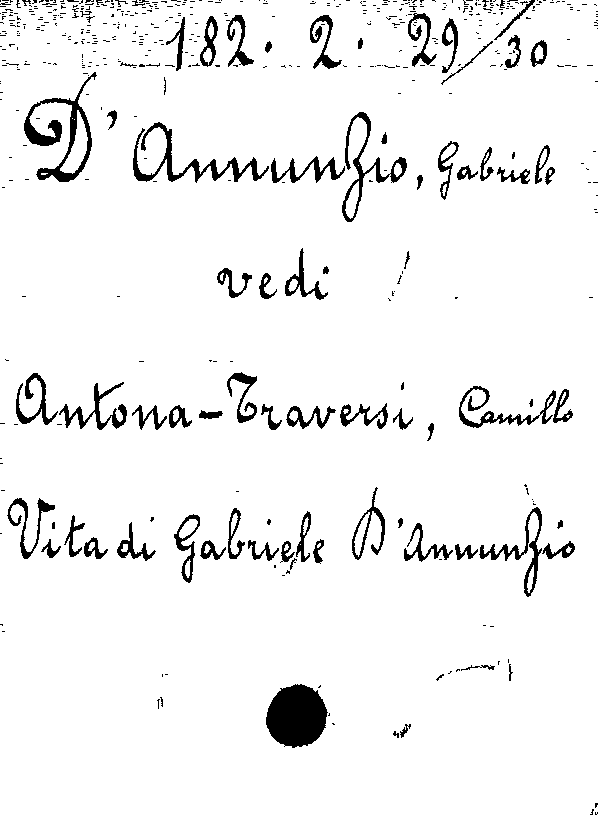 182. 2. 29/30
D'Annunzio, Gabriele
vedi
Antona-Traversi, Camillo
Vita di Gabriele D'Annunzio